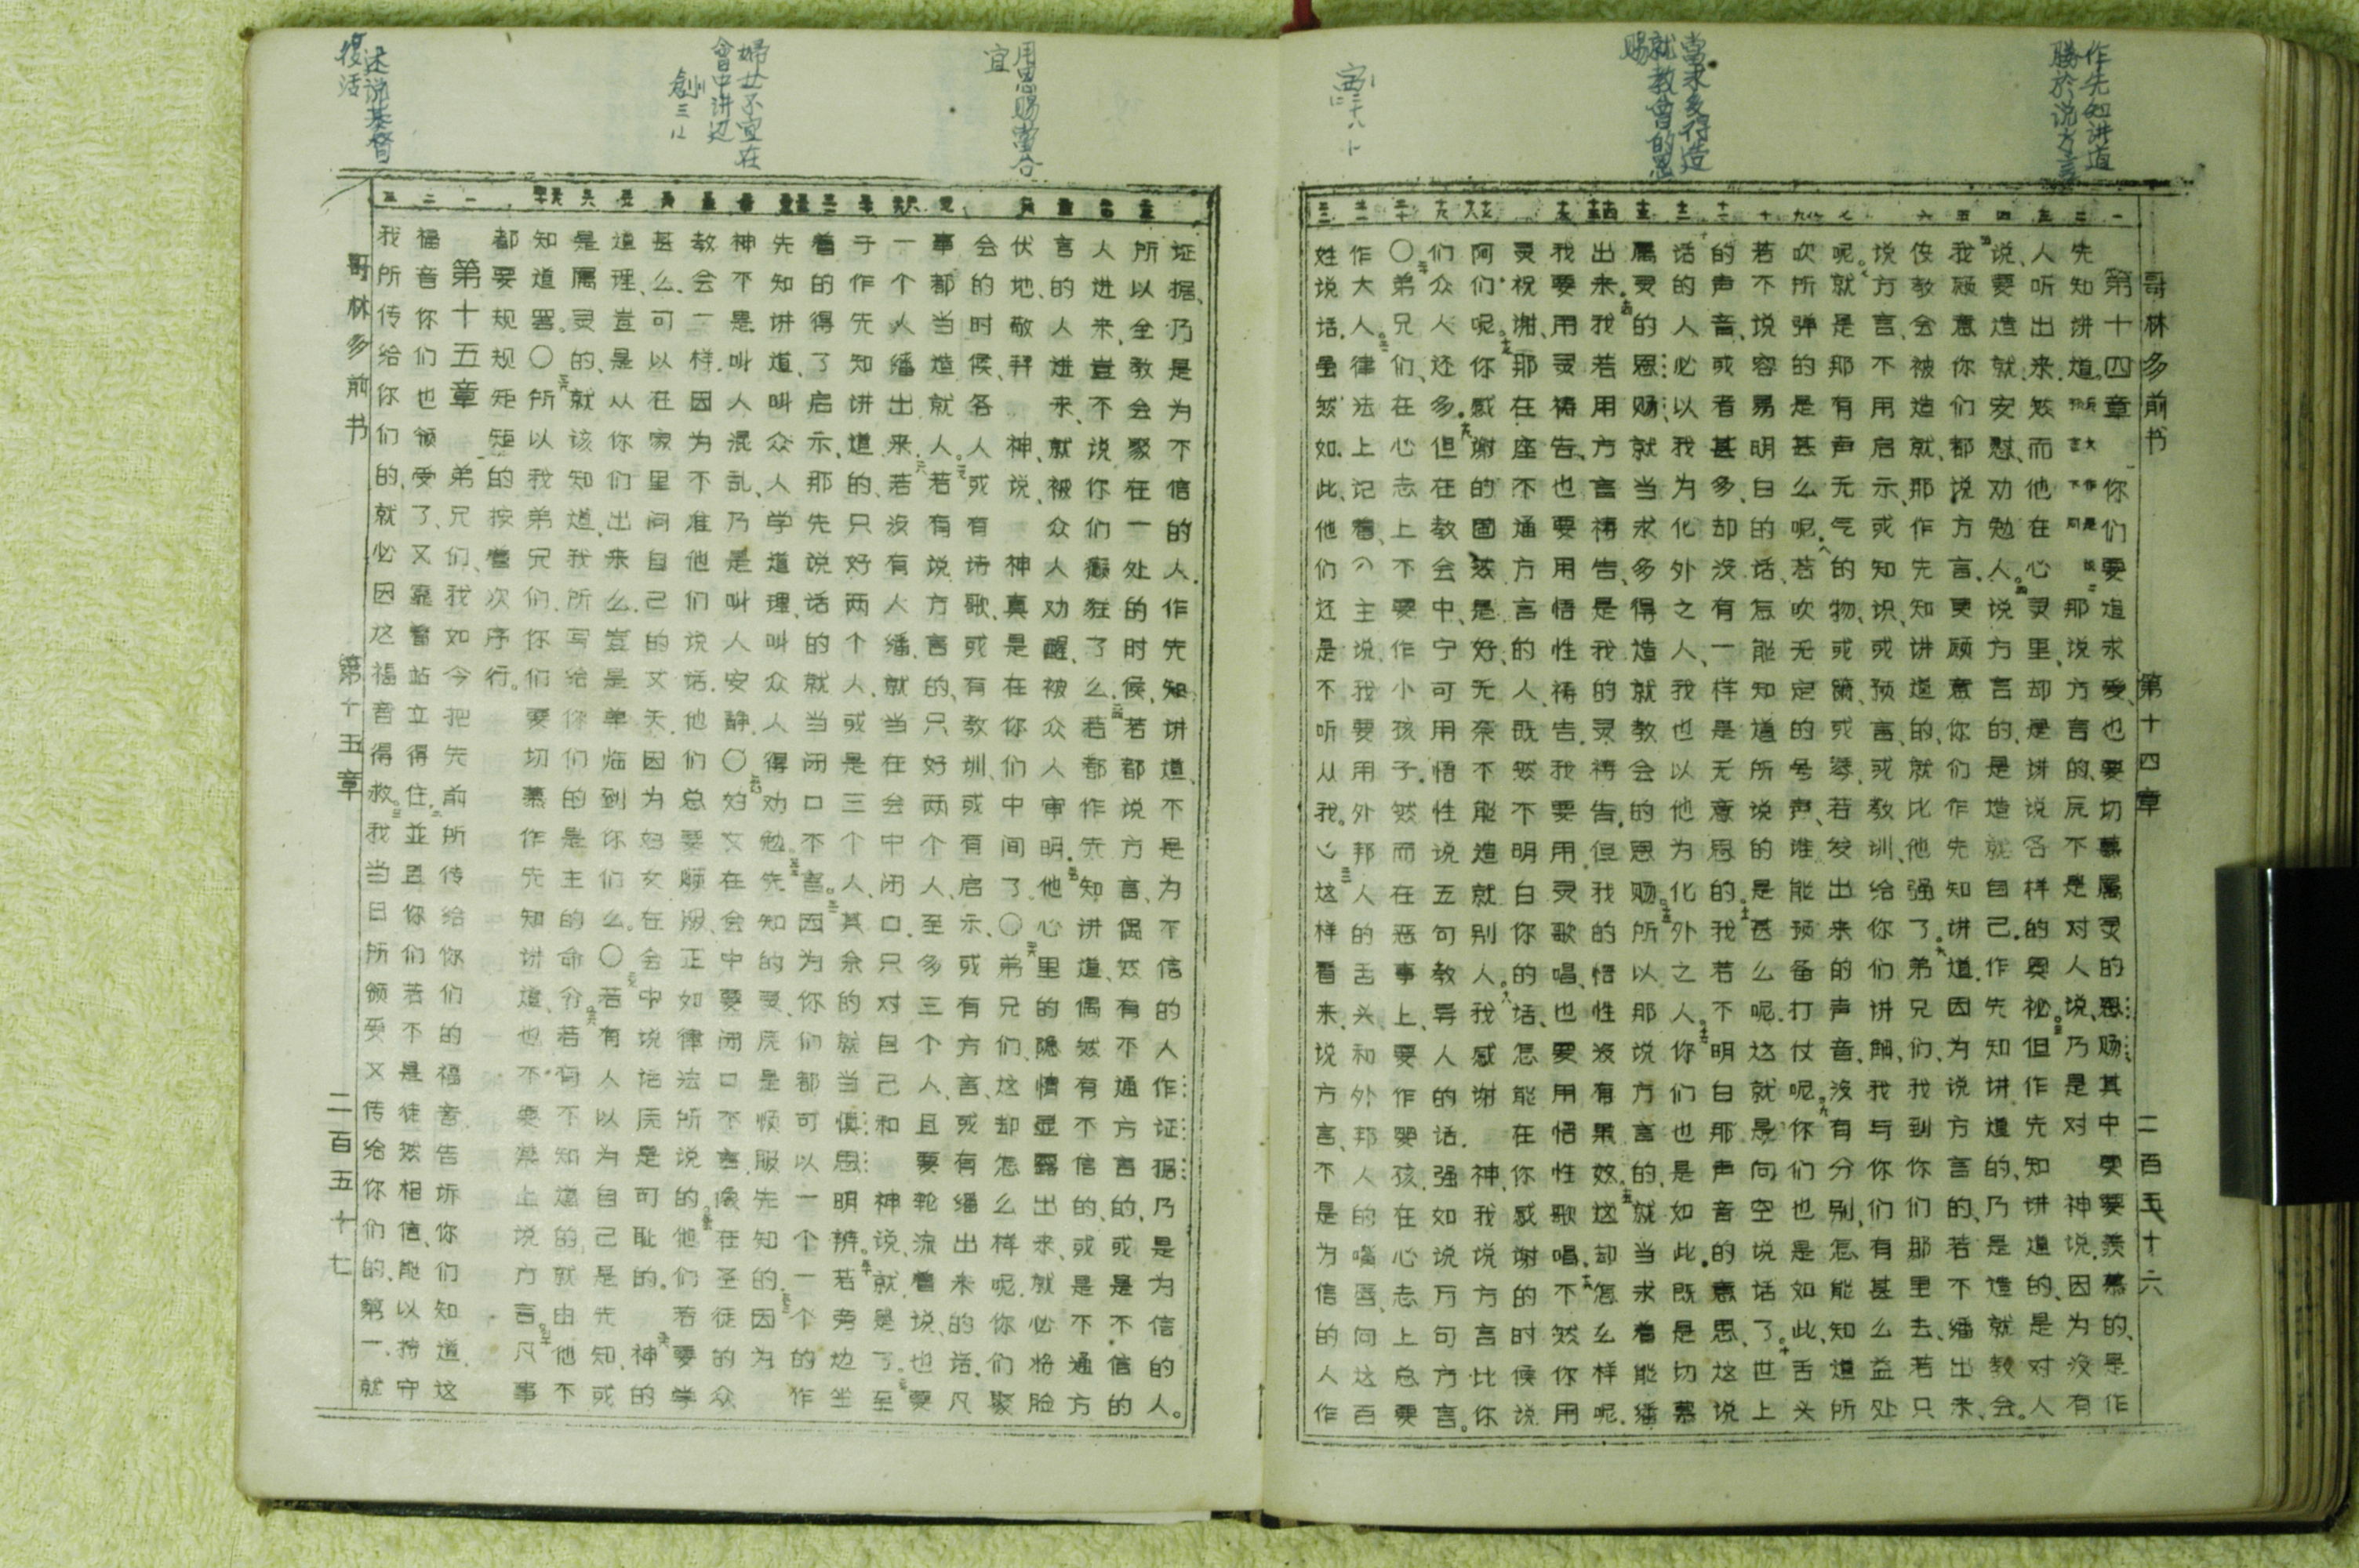 作先知讲道
勝於说方言
當求多得造
就教會的恩
賜
哥林多前书 第十四章 二百五十六
第十四章 你们要追求爱、也要切慕属灵的恩赐、其中更要羡慕的、是作
先知讲道。原文作说预言下同那说方言的、原不是对人说、乃是对神说．因为没有
人听出来．然而他在心灵里、却是讲说各样的奥秘。但作先知讲道的、是对人
说、要造就、安慰、劝勉人。说方言的、是造就自己．作先知讲道的、乃是造就教会。
我愿意你们都说方言．更愿意你们作先知讲道．因为说方言的、若不繙出来、
使教会被造就、那作先知讲道的、就比他强了。弟兄们、我到你们那里去、若只
说方言、不用启示、或知识、或预言、或教训、给你们讲解、我与你们有甚么益处
呢。就是那有声无气的物、或箫、或琴、若发出来的声音、没有分别、怎能知道所
吹所弹的是甚么呢．若吹无定的号声、谁能预备打仗呢．你们也是如此、舌头
若不说容易明白的话、怎能知道所说的是甚么呢．这就是向空说话了。世上
的声音、或者甚多、却没有一样是无意思的。我若不明白那声音的意思、这说
话的人必以我为化外之人、我也以他为化外之人．你们也是如此．既是切慕
属灵的恩赐、就当求多得造就教会的恩赐。所以那说方言的、就当求着能繙
出来。我若用方言祷告、是我的灵祷告．但我的悟性没有果效。这却怎么样呢．
我要用灵祷告、也要用悟性祷告．我要用灵歌唱、也要用悟性歌唱。不然你用
灵祝谢、那在座不通方言的人、既然不明白你的话、怎能在你感谢的时候说
阿们呢。你感谢的固然是好、无奈不能造就别人。我感谢神、我说方言比你
们众人还多。但在教会中、宁可用悟性说五句教导人的话．强如说万句方言。
〇弟兄们、在心志上不要作小孩子．然而在恶事上、要作婴孩．在心志上总要
作大人。律法上记着、（主说、我要用外邦人的舌头、和外邦人的嘴唇、向这百
姓说话．虽然如此、他们还是不听从我。）这样看来、说方言、不是为信的人作
用恩赐當合
宜
婦女不宜在
會中讲
创三
述说基督
復活
证据、乃是为不信的人．作先知讲道、不是为不信的人作证据、乃是为信的人。
所以全教会聚在一处的时候、若都说方言、偶有不通方言的、或是不信的
人进来、岂不说你们癫狂了么．若都作先知讲道、偶然有不信的、或是不通方
言的人进来、就被众人劝醒、被众人审明．他心里的隐情显露出来、就必将脸
伏地、敬拜神、说、神真是在你们中间了。〇弟兄们、这却怎么样呢．你们聚
会的时候、各人或有诗歌、或有教训、或有启示、或有方言、或有繙出来的话．凡
事都当造就人。若有说方言的、只好两个人、至多三个人、且要轮流着说、也要
一个人繙出来．若没有人繙、就当在会中闭口．只对自己和神说、就是了。至
于作先知讲道的、只好两个人、或是三个人、其余的就当慎思明辨。若旁边坐
着的得了启示、那先说话的就当闭口不言。因为你们都可以一个一个的作
先知讲道、叫众人学道理、叫众人得劝勉。先知的灵、原是顺服先知的．因为
神不是叫人混乱、乃是叫人安静。〇妇女在会中要闭口不言、像在圣徒的众
教会一样．因为不准他们说话．他们总要顺服、正如律法所说的。他们若要学
甚么、可以在家里问自己的丈夫．因为妇女在会中说话原是可耻的。神的
道理、岂是从你们出来么．岂是单临到你们么。〇若有人以为自己是先知、或
是属灵的、就该知道、我所写给你们的是主的命令．若有不知道的、就由他不
知道罢。〇所以我弟兄们、你们要切慕作先知讲道、也不要禁止说方言．凡事
都要规规矩矩的按着次序行。
第十五章 弟兄们、我如今把先前所传给你们的福音、告诉你们知道．这
福音你们也领受了、又靠着站立得住．並且你们若不是徒然相信、能以持守
我所传给你们的、就必因这福音得救。我当日所领受又传给你们的、第一、就
哥林多前书 第十五章 二百五十七